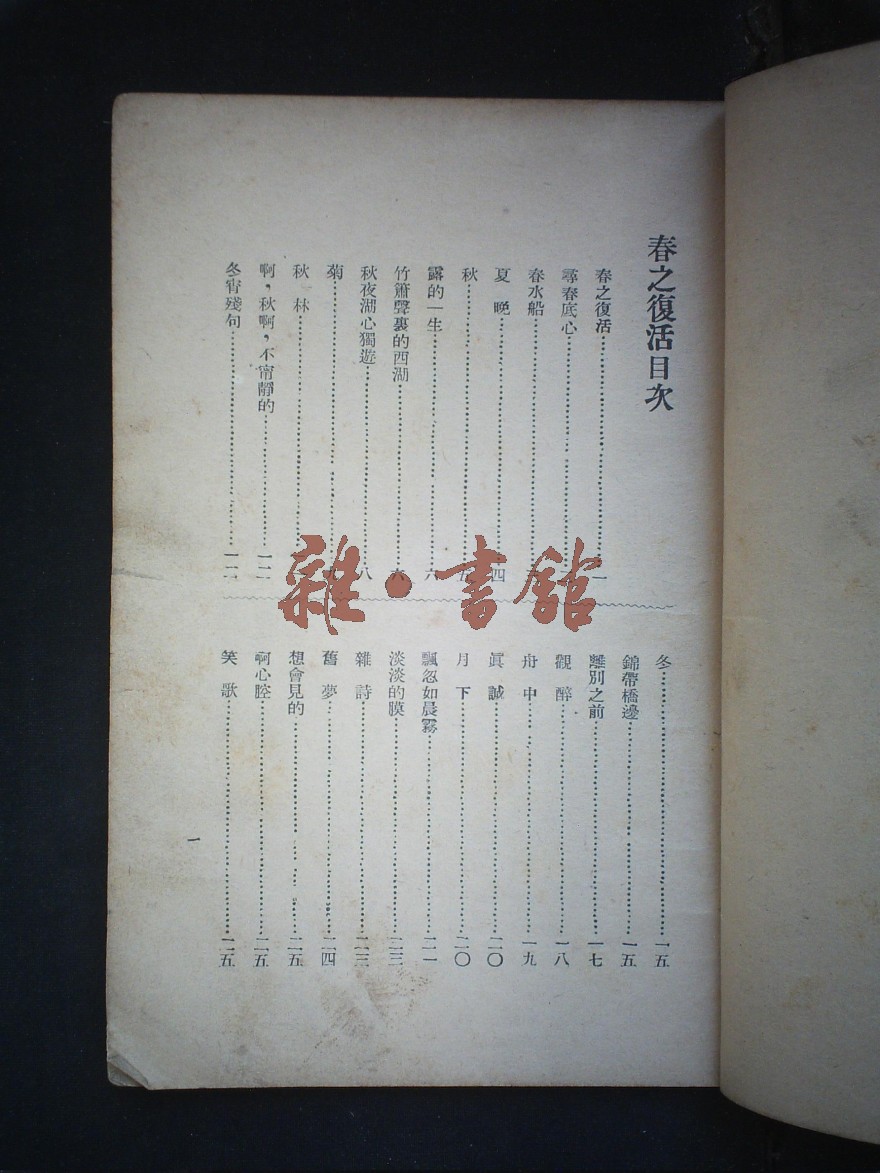 春之復活目次
春之復活一
尋春底心
春水船
夏晚四
秋五
露的一生六
竹簫聲裏的西湖六
秋夜湖心獨遊八
菊九
秋林
啊，秋啊，不甯靜的一二
冬宵殘句一二
冬一五
錦帶橋邊一五
離別之前一七
觀醉一八
舟中一九
眞誠二〇
月下二〇
飄忽如晨霧二一
淡淡的膜二三
雜詩二三
舊夢二四
想會見的二五
啊心腔二五
笑歌二五
一
雜·書館